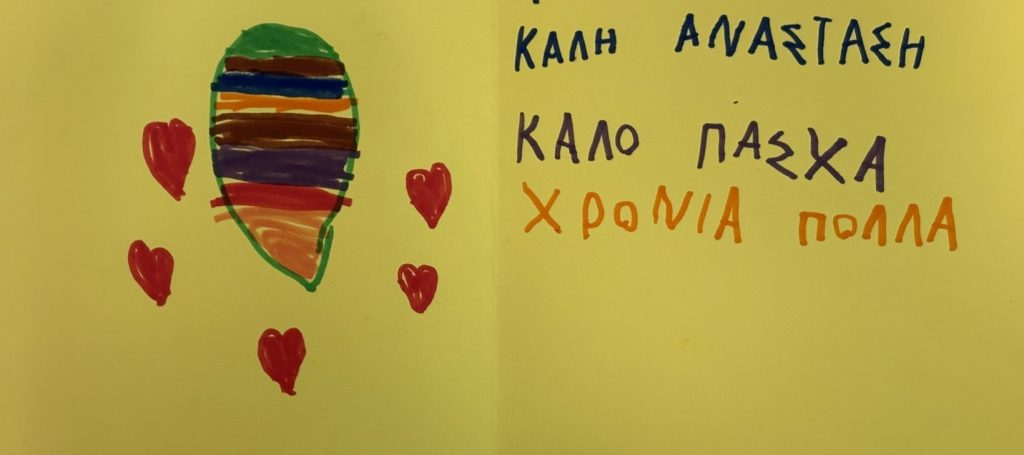 ΚΑΛΗ ΑΝΑΣΤΑΣΗ
ΚΑΛΟ ΠΑΣΧΑ
ΧΡΟΝΙΑ ΠΟΛΛΑ